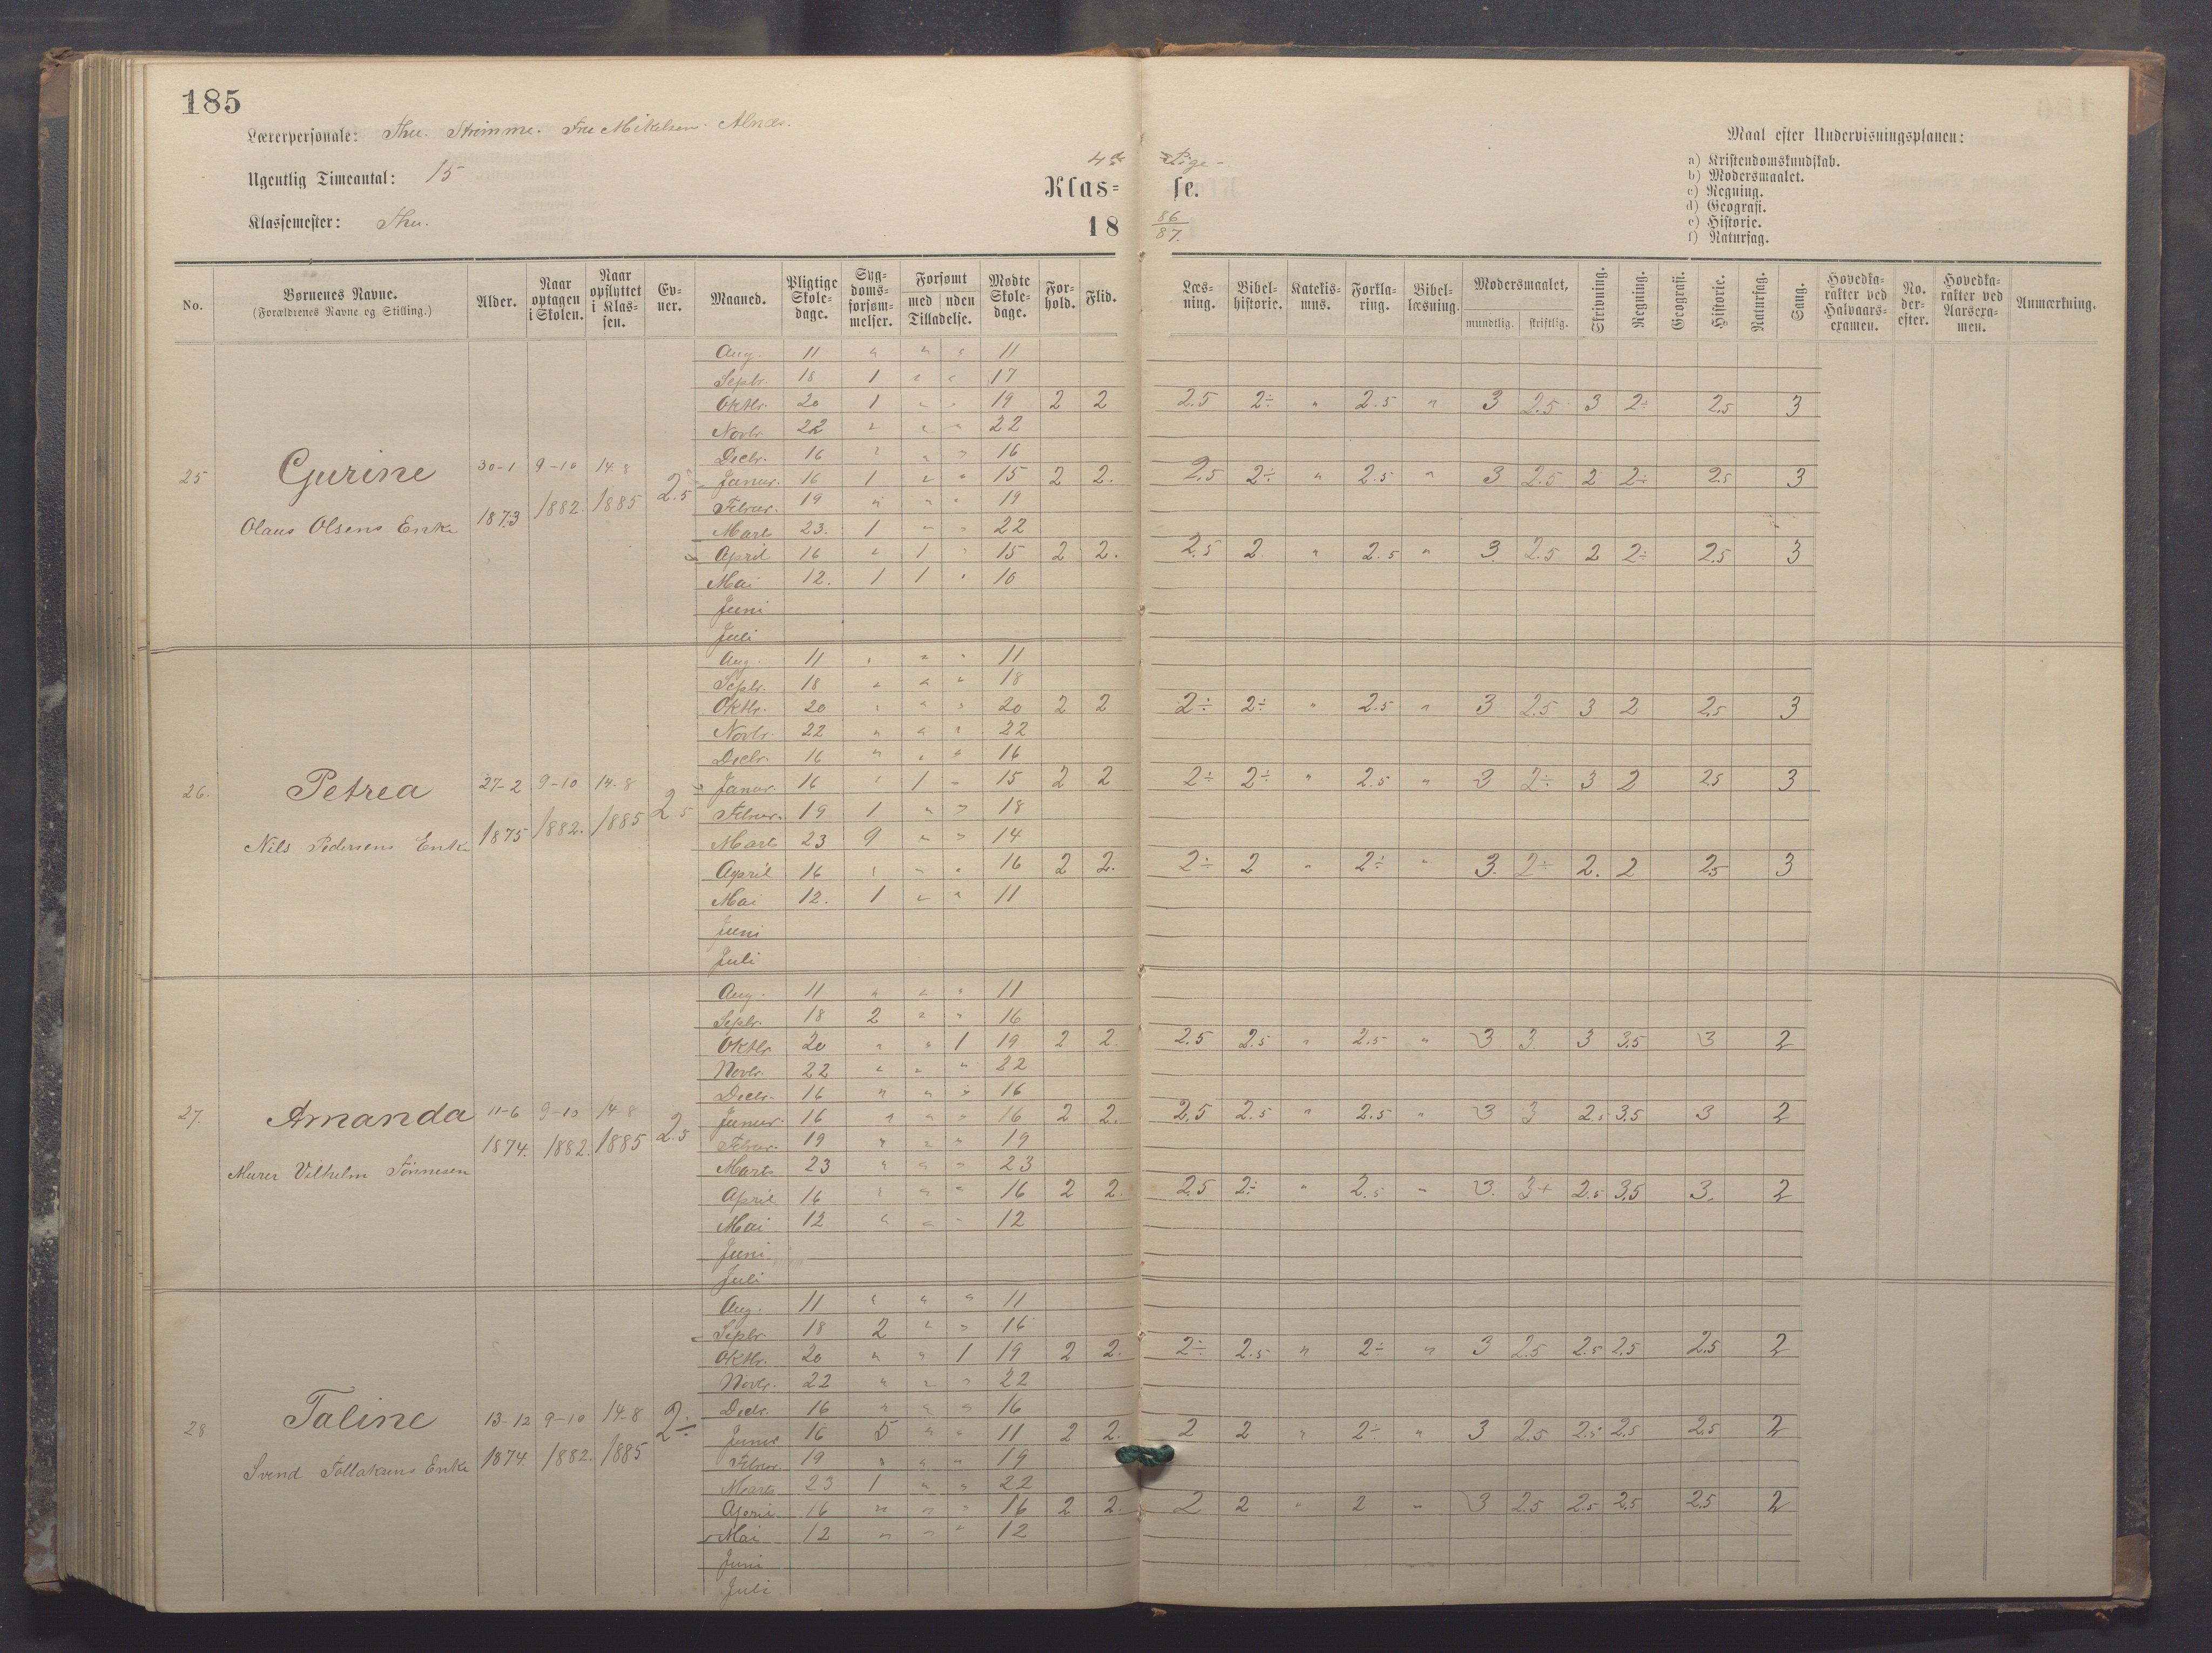 185
Lærerpersonale: Thu. Strømme. Fru Mikelsen. Alnæs.
Ugentlig Timeantal: 15
Klassemester: Thu.
4de Pige-
Klas= se.
18 86/87.
Maal efter Undervisningsplanen:
a) Kristendomskundskab.
b) Modersmaalet.
c) Regning.
d) Geografi.
e) Historie.
f) Naturfag.
No. Børnenes Navne. (Forældrenes Navne og Stilling.) Alder. Naar optagen i Skolen. Naar opflyttet i Klassen. Evner. Maaned. Pligtige Skoledage. Sygdomsforsømmelser. Forsømt med uden Tilladelse. Mødte Skoledage. Forhold. Flid. Læsning. Bibelhistorie. Katekismus. Forklaring. Bibellæsning. Modersmaalet, mundtlig. skriftlig. Skrivning. Regning. Geografi. Historie. Naturfag. Sang. Hovedkarakter ved Halvaarsexamen. No. derefter. Hovedkarakter ved Aarsexamen. Anmærkning.
25 Gurine 30-1 1873 9-10 1882. 14-8 1885 2.5
Olaus Olsens Enke
Aug. 11 " " " 11
Septbr. 18 1 " " 17
Oktbr. 20 1 " " 19 2 2 2.5 2÷ " 2.5 " 3 2.5 3 2÷ 2.5 3
Novbr. 22 " " " 22
Decbr. 16 " " " 16
Januar. 16 1 " " 15 2 2. 2.5 2÷ " 2.5 " 3 2.5 2 2÷ 2.5 3
Februar. 19 " " " 19
Marts 23. 1 " " 22
April 16 " 1 " 15 2 2. 2.5 2. " 2.5 " 3. 2.5 2 2÷ 2.5 3
Mai 12. 1 1 " 10
Juni
Juli
26. Petrea 27-2 1875 9-10 1882. 14-8 1885 2.5
Nils Pedersens Enke
Aug. 11 " " " 11
Septbr. 18 " " " 18
Oktbr. 20 " " " 20 2 2 2÷ 2÷ " 2.5 " 3 2.5 3 2 2.5 3
Novbr. 22 " " " 22
Decbr. 16 " " " 16
Januar. 16 " 1 " 15 2 2 2÷ 2÷ " 2.5 " 3 2÷ 3 2 2.5 3
Februar. 19 1 " " 18
Marts 23 9 " " 14
April 16 " " " 16 2 2. 2÷ 2 " 2÷ " 3. 2÷ 2. 2 2.5 3
Mai 12. 1 " " 11
Juni
Juli
27. Amanda 11-6 1874. 9-10 1882. 14-8 1885 2.5
Murer Vilhelm Tønnesen
Aug. 11 " " " 11
Septbr. 18 2 " " 16
Oktbr. 20 " " 1 19 2 2. 2.5 2.5 " 2.5 " 3 3. 3 3.5 3 2
Novbr. 22 " " " 22
Decbr. 16 " " " 16
Januar. 16 " " " 16 2 2. 2.5 2.5 " 2.5 " 3 3 2.5 3.5 3 2
Februar. 19 " " " 19
Marts 23 " " " 23
April 16 " " " 16 2 2. 2.5 2÷ " 2.5 " 3. 3+ 2.5 3.5 3. 2
Mai 12 " " " 12
Juni
Juli
28 Taline 13-12 1874. 9-10 1882. 14-8 1885 2÷
Svend Tollaksens Enke
Aug. 11 " " " 11
Septbr. 18 2 " " 16
Oktbr. 20 " " 1 19 2 2. 2÷ 2.5 " 2÷ " 3 2.5 2.5 2.5 2.5 2
Novbr. 22 " " " 22
Decbr. 16 " " " 16
Januar 16 5 " " 11 2 2. 2 2 " 2÷ " 3 2.5 2.5 2.5 2.5 2
Februar. 19 " " " 19
Marts 23 1 " " 22
April 16 " " " 16 2 2. 2 2 " 2 " 3 2.5 2.5 2.5 2.5 2
Mai 12 " " " 12
Juni
Juli